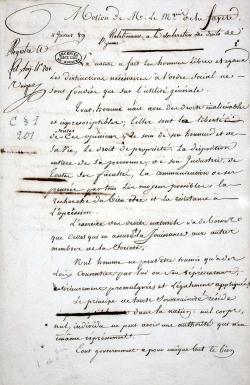 Motion de M. Le Mis. de la Fayette
Relativement à la déclaration des droits de
l'homme
La nature a fait les hommes libres et égaux
Les distinctions nécessaires à l'ordre Social ne
fondées que sur l'utilité générale.
Tout homme naît avec des droits inaliénables
et imprescriptibles; Telles sont la liberté
de ses opinions, le soin de son honneur et de
Sa vie, le droit de propriété, la disposition
entière de sa personne, de son Industrie, de
toutes ses facultés, la communication de ses
pensées par tous les moyens possibles, la
recherche du bien être et la résistance à
L'oppression.
L'exercice des droits naturels n'a de bornes
que celles qui en assurent la jouissance aux autres
membres de la Société.
Nul homme ne peut être soumis qu'à des
Loix consenties par lui ou ses représentans,
antérieurement promulguées et légalement appliquées
Le principe de toute Souveraineté réside
dans la nation, nul corps,
nul individu ne peut avoir une autorité qui n'en
émane expressément.
Tout gouvernement a pour unique but le bien
C § I
201